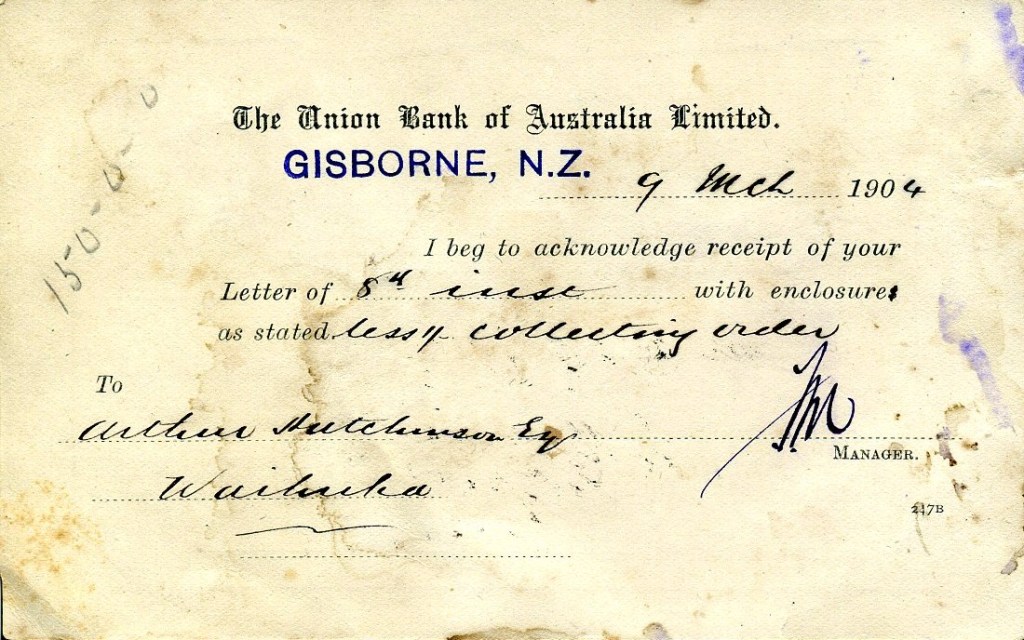 The Union Bank of Australia Limited.
GISBORNE, N.Z.
9 Mch 1904
I beg to acknowledge receipt of your
Letter of 8th inst with enclosures
as stated. less collecting order
To
Arthur Hutchinson Esq
MANAGER.
247B
150-0-0